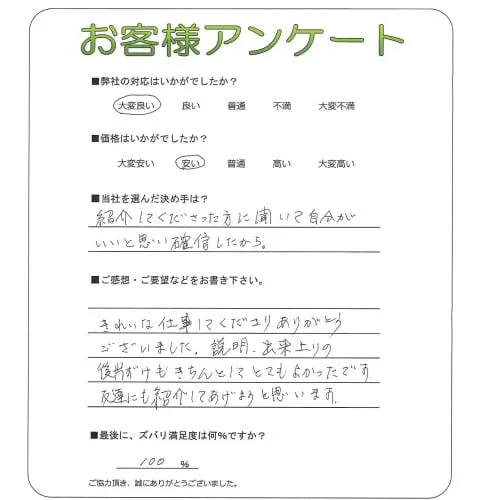 お客様アンケート
■弊社の対応はいかがでしたか？
大変良い 良い 普通 不満 大変不満
■価格はいかがでしたか？
大変安い 安い 普通 高い 大変高い
■当社を選んだ決め手は？
紹介してくださった方に聞いて自分が
いいと思い確信したから。
■ご感想・ご要望などをお書き下さい。
きれいな仕事してくださりありがとう
ございました。説明、出来上りの
後片づけもきちんとしてとてもよかったです。
友達にも紹介してあげようと思います。
■最後に、ズバリ満足度は何％ですか？
100 %
ご協力頂き、誠にありがとうございました。